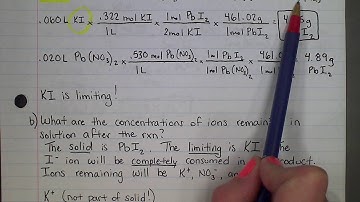 .060L KI × .322 mol KI / 1L × 1mol PbI2 / 2mol KI × 461.02g / 1mol PbI2 =
.020L Pb(NO3)2 × .530 mol Pb(NO3)2 / 1L × 1mol PbI2 / 1mol Pb(NO3)2 × 4.89g PbI2
KI is limiting!
b) What are the concentrations of ions remaining in
solution after the rxn?
The solid is PbI2. The limiting is KI.
I- ion will be completely consumed in
Ions remaining will be K+, NO3-,
K+ (not part of solid!)